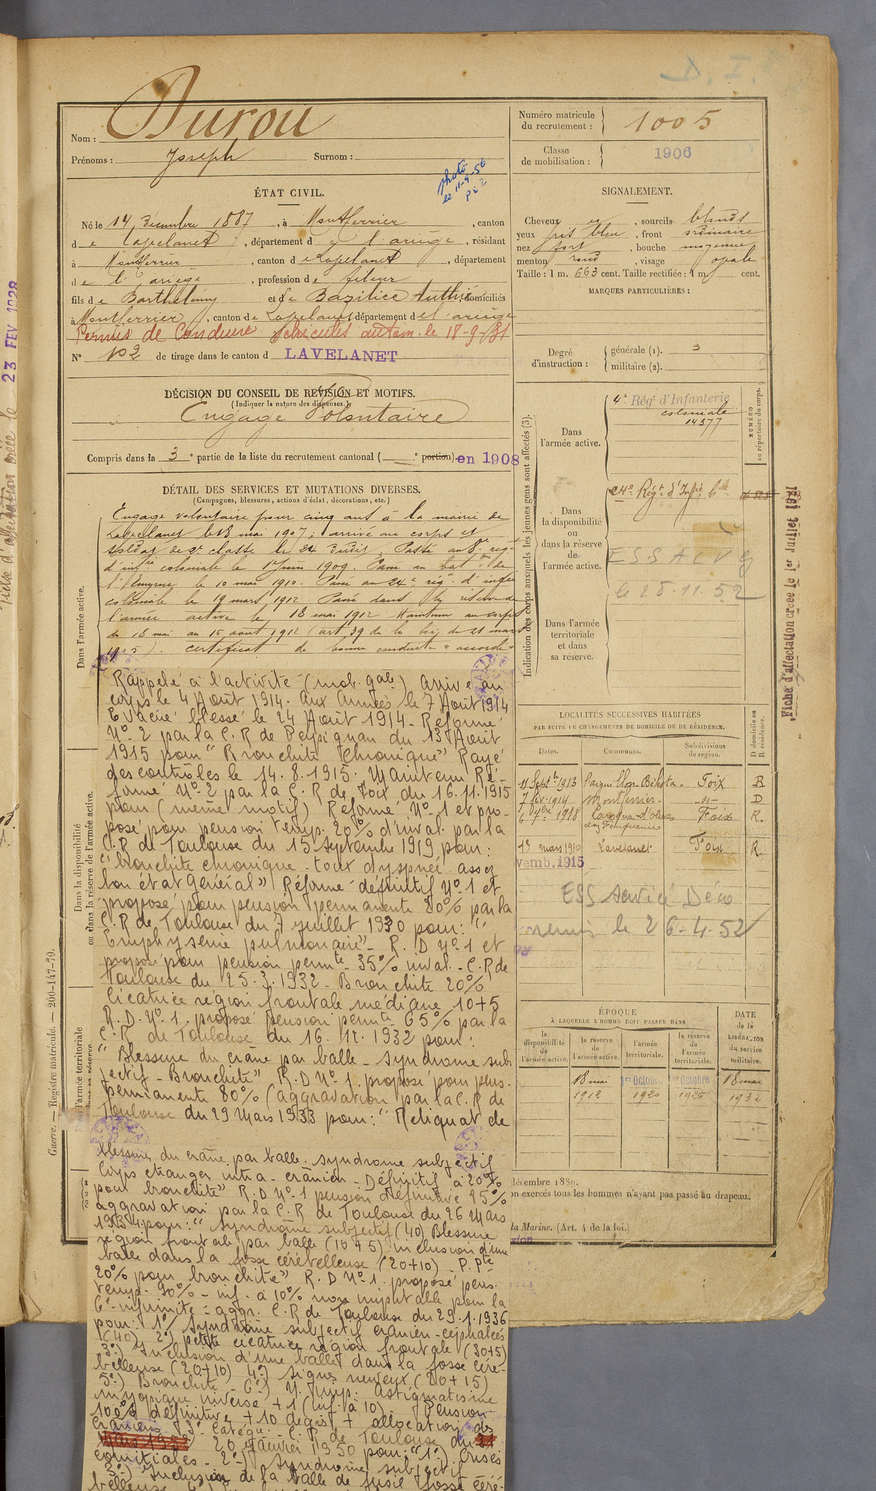 Nom : Durou
Prénoms : Joseph Surnom :
Numéro matricule du recrutement : 1005
Classe de mobilisation : 1906
ÉTAT CIVIL.
Né le 14 Décembre 1887, à Montferrier, canton
de Lavelanet, département de l'ariège, résidant
à Montferrier, canton de Lavelanet, département
de l'ariège, profession de fileur
fils de Barthélémy et de Bazilice Authié domiciliés
à Montferrier, canton de Lavelanet département de l'ariège
Permis de Conduire Véhicules autom. le 18-9-31
N° 102 de tirage dans le canton d LAVELANET
SIGNALEMENT.
Cheveux et, sourcils blonds
yeux gris bleu, front ordinaire
nez fort, bouche moyenne
menton rond, visage ovale
Taille : 1 m. 663 cent. Taille rectifiée : 1 m. cent.
MARQUES PARTICULIÈRES :
Degré d'instruction : générale (1). 3
militaire (2).
DÉCISION DU CONSEIL DE REVISION ET MOTIFS.
(Indiquer la nature des dispenses.)
Engagé Volontaire
Compris dans la 3e partie de la liste du recrutement cantonal ( e portion) en 1908
DÉTAIL DES SERVICES ET MUTATIONS DIVERSES.
(Campagnes, blessures, actions d'éclat, décorations, etc.)
Engagé volontaire pour cinq ans à la mairie de
Lavelanet le 18 mai 1907; arrivé au corps et
soldat de 2e classe le 24 dudit. Passé au 8e rég.
d'infie coloniale le 1er juin 1909. Passé au bat. de
l'Emyrne le 10 mai 1910. Passé au 24e rég. d'infie
coloniale le 19 mars 1912. Passé dans la réserve de
l'armée active le 18 mai 1912 Maintenu au corps
du 18 mai au 15 août 1912 (art. 39 de la loi du 21 mars
1905). certificat de bonne conduite "accordé"
Rappelé à l'activité (mob. gale) Arrivé au
corps le 4 Août 1914. Aux Armées le 7 Août 1914
Evacué blessé le 24 Août 1914 - Réformé
N° 2 par la C. R de Perpignan du 13 Août
1915 pour "Bronchite Chronique" Rayé
des contrôles le 14. 8. 1915. Maintenu Ré-
formé N° 2 par la C. R de Foix du 16. 11. 1915
pour (même motif) Réformé N° 1 et pro-
posé pour pension temp. 20% d'inval. par la
C. R de Toulouse du 15 septembre 1919 pour :
"bronchite chronique - toux dyspnée assez
bon état général" Réformé définitif N° 1 et
proposé pour pension permanente 30% par la
C. R de Toulouse du 7 juillet 1930 pour : "
Emphysème pulmonaire" - R. D N° 1 et
proposé pour pension permte - 35% inval - C. R de
Toulouse du 25. 3. 1932 - Bronchite 20%
Cicatrice région frontale médiane 10+5
R. D. N° 1. proposé pension permte 65% par la
C. R de Toulouse du 16. 11. 1932 pour :
"Blessure du crâne par balle - syndrome sub-
jectif - Bronchite" R. D N° 1. proposé pour pens.
permanente 80% (aggravation) par la C. R de
Toulouse du 29 Mars 1933 pour : "Reliquat de
blessure du crâne par balle - syndrome subjectif
Corps étranger intra-crânien - Définitif à 20%
pour bronchite" R. D N° 1 pension définitive 95%
aggravation par la C. R de Toulouse du 26 Mars
1934 pour : "syndrome subjectif (40) Blessure
région frontale par balle (10+5) inclusion d'une
balle dans la fosse cérébelleuse (20+10) - P. Pte
20% pour bronchite" R. D N° 1. proposé pens.
temp. 90% - inf. à 10% non imputable pour la
6e infirmité - aggr. C. R de Toulouse du 29. 1. 1936
pour : 1°/ Syndrome subjectif crânien - céphalées
(40) 2°) petite cicatrice région frontale (30+5)
3°) Inclusion d'une balle dans la fosse céré-
belleuse (20+10) 4°) signes nerveux (20+15)
5°) Bronchite - 6°) N. imp : Astigmatisme
myopique inverse + 1 (inf. à 10) - Pension
100% définitive + 10 degrés + allocation
C. R de Toulouse du
20 Janvier 1950 pour : "1°) Crises
comitiales - 2°) Syndrome subjectif
3°) Inclusion de la balle de fusil fosse céré-
Dans l'armée active.
Dans la disponibilité ou dans la réserve de l'armée active.
l'armée territoriale
Indication des corps auxquels les jeunes gens sont affectés (3).
NUMÉRO au répertoire du corps.
Dans l'armée active.
4e Régt d'Infanterie
coloniale
14377
Dans la disponibilité ou dans la réserve de l'armée active.
24e Régt d'Infie Cle
ESSACVG
le 28.11.52
Dans l'armée territoriale et dans sa réserve.
LOCALITÉS SUCCESSIVES HABITÉES
PAR SUITE DE CHANGEMENTS DE DOMICILE OU DE RÉSIDENCE.
Dates. Communes. Subdivisions de région. D domicile ou R résidence.
11 Septbre 1913 Foix R
7 fév. 1914 Montferrier -d°- D
1918 Foix R.
Lavelanet Foix R.
vemb. 1915
ESS service Déco
remis le 26-4-52
ÉPOQUE
À LAQUELLE L'HOMME DOIT PASSER DANS
DATE de la LIBÉRATION du service militaire.
la disponibilité de l'armée active. la réserve de l'armée active. l'armée territoriale. la réserve de l'armée territoriale.
18 mai 1er Octobre 1er Octobre 18 mai
1912 1920 1926 1932
décembre 1889.
on exercés tous les hommes n'ayant pas passé au drapeau.
la Marine. (Art. 4 de la loi.)
Guerre. — Registre matricule. — 200-147-79.
Fiche d'affectation créée le 1er Juillet 1921
Fiche d'affectation créée le 23 FEV 1928